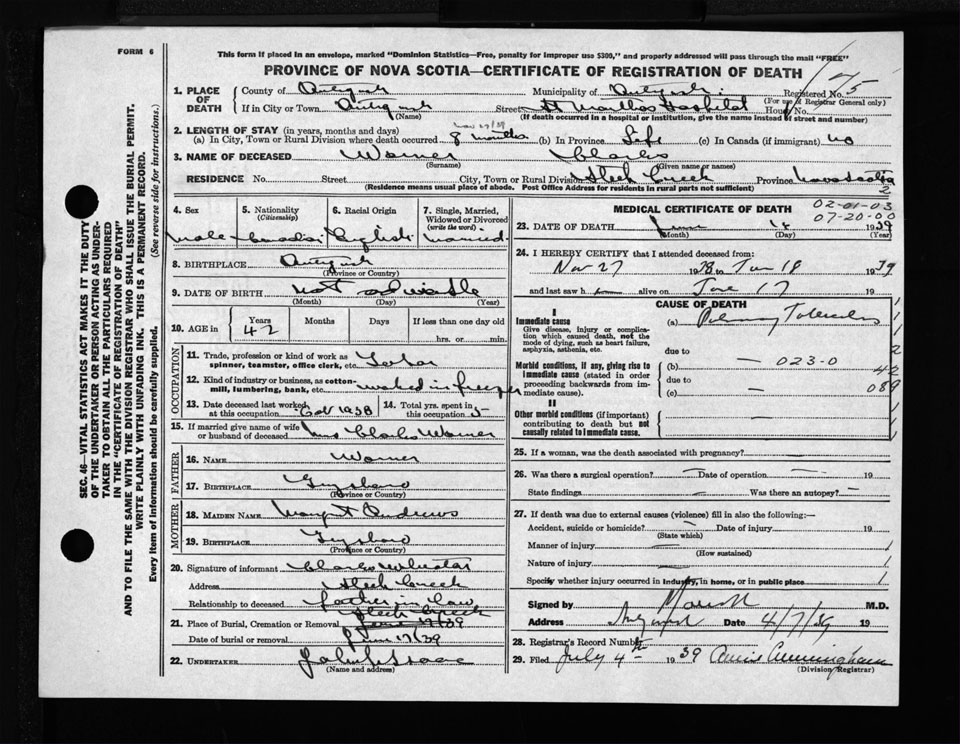 FORM 6
This form if placed in an envelope, marked "Dominion Statistics—Free, penalty for improper use $300," and properly addressed will pass through the mail "FREE"
PROVINCE OF NOVA SCOTIA—CERTIFICATE OF REGISTRATION OF DEATH
175
1. PLACE OF DEATH
County of Antigonish Municipality of Antigonish Registered No. 5
(For use of Registrar General only)
If in City or Town Antigonish Street St Marthas Hospital House No.
(Name) (If death occurred in a hospital or institution, give the name instead of street and number)
2. LENGTH OF STAY (in years, months and days) Nov 27/39
(a) In City, Town or Rural Division where death occurred 8 months (b) In Province Life (c) In Canada (if immigrant) no
3. NAME OF DECEASED Warner Charles
(Surname) (Given name or names)
RESIDENCE No. Street City, Town or Rural Division Creek Province Nova Scotia
(Residence means usual place of abode. Post Office Address for residents in rural parts not sufficient) 2
4. Sex
male
5. Nationality (Citizenship)
Canadian
6. Racial Origin
English
7. Single, Married, Widowed or Divorced (write the word)
married
8. BIRTHPLACE Antigonish
(Province or Country)
9. DATE OF BIRTH not
(Month) (Day) (Year)
10. AGE in Years Months Days If less than one day old
42 hrs. or min.
OCCUPATION
11. Trade, profession or kind of work as spinner, teamster, office clerk, etc.
12. Kind of industry or business, as cotton-mill, lumbering, bank, etc. worked in freezer
13. Date deceased last worked at this occupation Oct 1938
14. Total yrs. spent in this occupation 5
15. If married give name of wife or husband of deceased Mrs Charles Warner
FATHER
16. NAME Warner
17. BIRTHPLACE Guysboro
(Province or Country)
MOTHER
18. MAIDEN NAME Andrews
19. BIRTHPLACE Guysboro
(Province or Country)
20. Signature of informant Charles
Address Creek
Relationship to deceased father in law
21. Place of Burial, Cremation or Removal Creek
June 19/39
Date of burial or removal June 19/39
22. UNDERTAKER
(Name and address)
MEDICAL CERTIFICATE OF DEATH
02-01-03
07-20-00
23. DATE OF DEATH June 18 1939
(Month) (Day) (Year)
24. I HEREBY CERTIFY that I attended deceased from:
Nov 27 1938 to Jun 18 1939
and last saw h alive on June 17 19
CAUSE OF DEATH
I
Immediate cause
Give disease, injury or complication which caused death, not the mode of dying, such as heart failure, asphyxia, asthenia, etc.
(a) Pulmonary Tuberculosis
due to
Morbid conditions, if any, giving rise to immediate cause (stated in order proceeding backwards from immediate cause).
(b) — 023-0
due to
(c) —
42
089
II
Other morbid conditions (if important) contributing to death but not causally related to immediate cause.
25. If a woman, was the death associated with pregnancy? —
26. Was there a surgical operation? — Date of operation — 19
State findings — Was there an autopsy? —
27. If death was due to external causes (violence) fill in also the following:—
Accident, suicide or homicide? — Date of injury 19
(State which)
Manner of injury —
(How sustained)
Nature of injury —
Specify whether injury occurred in industry, in home, or in public place
Signed by M.D.
Address Antigonish Date 4/7/39 19
28. Registrar's Record Number
29. Filed July 4th 1939 Annie Cunningham
(Division Registrar)
SEC. 46—VITAL STATISTICS ACT MAKES IT THE DUTY OF THE UNDERTAKER OR PERSON ACTING AS UNDERTAKER TO OBTAIN ALL THE PARTICULARS REQUIRED IN THE "CERTIFICATE OF REGISTRATION OF DEATH"
AND TO FILE THE SAME WITH THE DIVISION REGISTRAR WHO SHALL ISSUE THE BURIAL PERMIT.
WRITE PLAINLY WITH UNFADING INK. THIS IS A PERMANENT RECORD.
Every item of information should be carefully supplied. (See reverse side for instructions.)